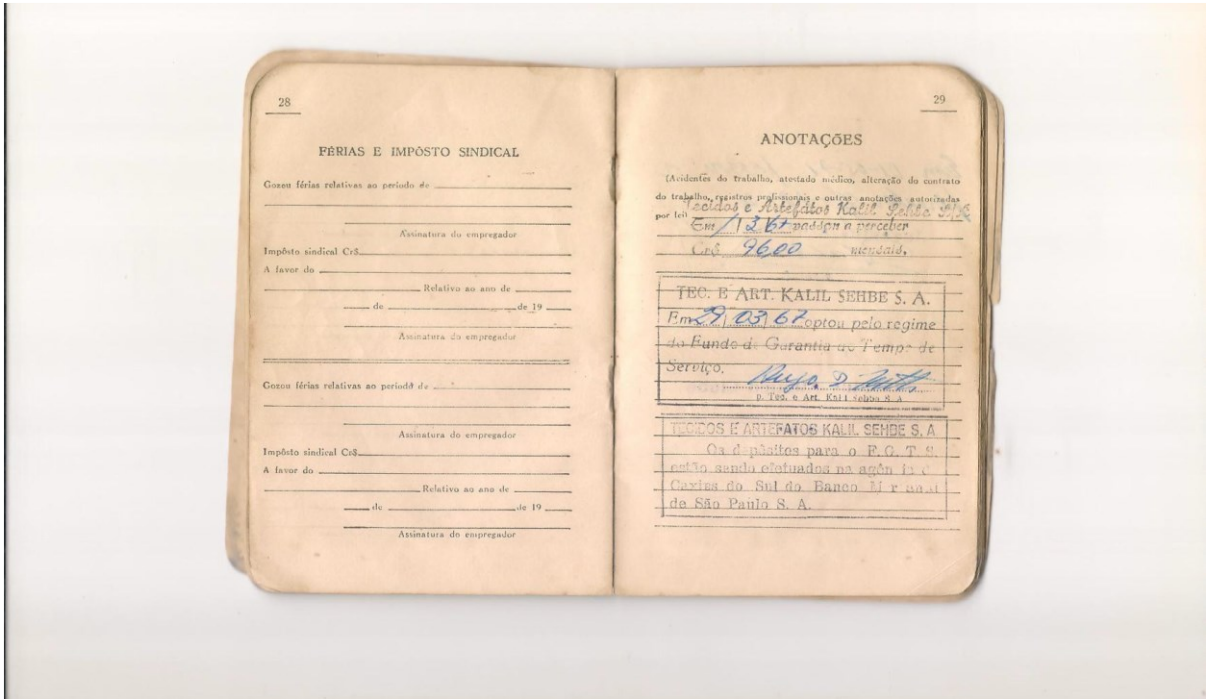 28
FÉRIAS E IMPÔSTO SINDICAL
Gozou férias relativas ao período de
Assinatura do empregador
Impôsto sindical Cr$
A favor do
Relativo ao ano de
de de 19
Assinatura do empregador
Gozou férias relativas ao período de
Assinatura do empregador
Impôsto sindical Cr$
A favor do
Relativo ao ano de
de de 19
Assinatura do empregador
29
ANOTAÇÕES
(Acidentes do trabalho, atestado médico, alteração do contrato
do trabalho, registros profissionais e outras anotações autorizadas
por lei)
Tecidos e Artefátos Kalil Sehbe S/A
Em 1 3 67 passou a perceber
Cr$ 96,00 mensais.
TEC. E ART. KALIL SEHBE S. A.
Em 29 03 67 optou pelo regime
do Fundo de Garantia do Tempo de
Serviço.
p. Tec. e Art. Kalil Sehbe S. A.
TECIDOS E ARTEFATOS KALIL SEHBE S. A.
Os depósitos para o F. G. T. S.
estão sendo efetuados na
Caxias do Sul do Banco
de São Paulo S. A.